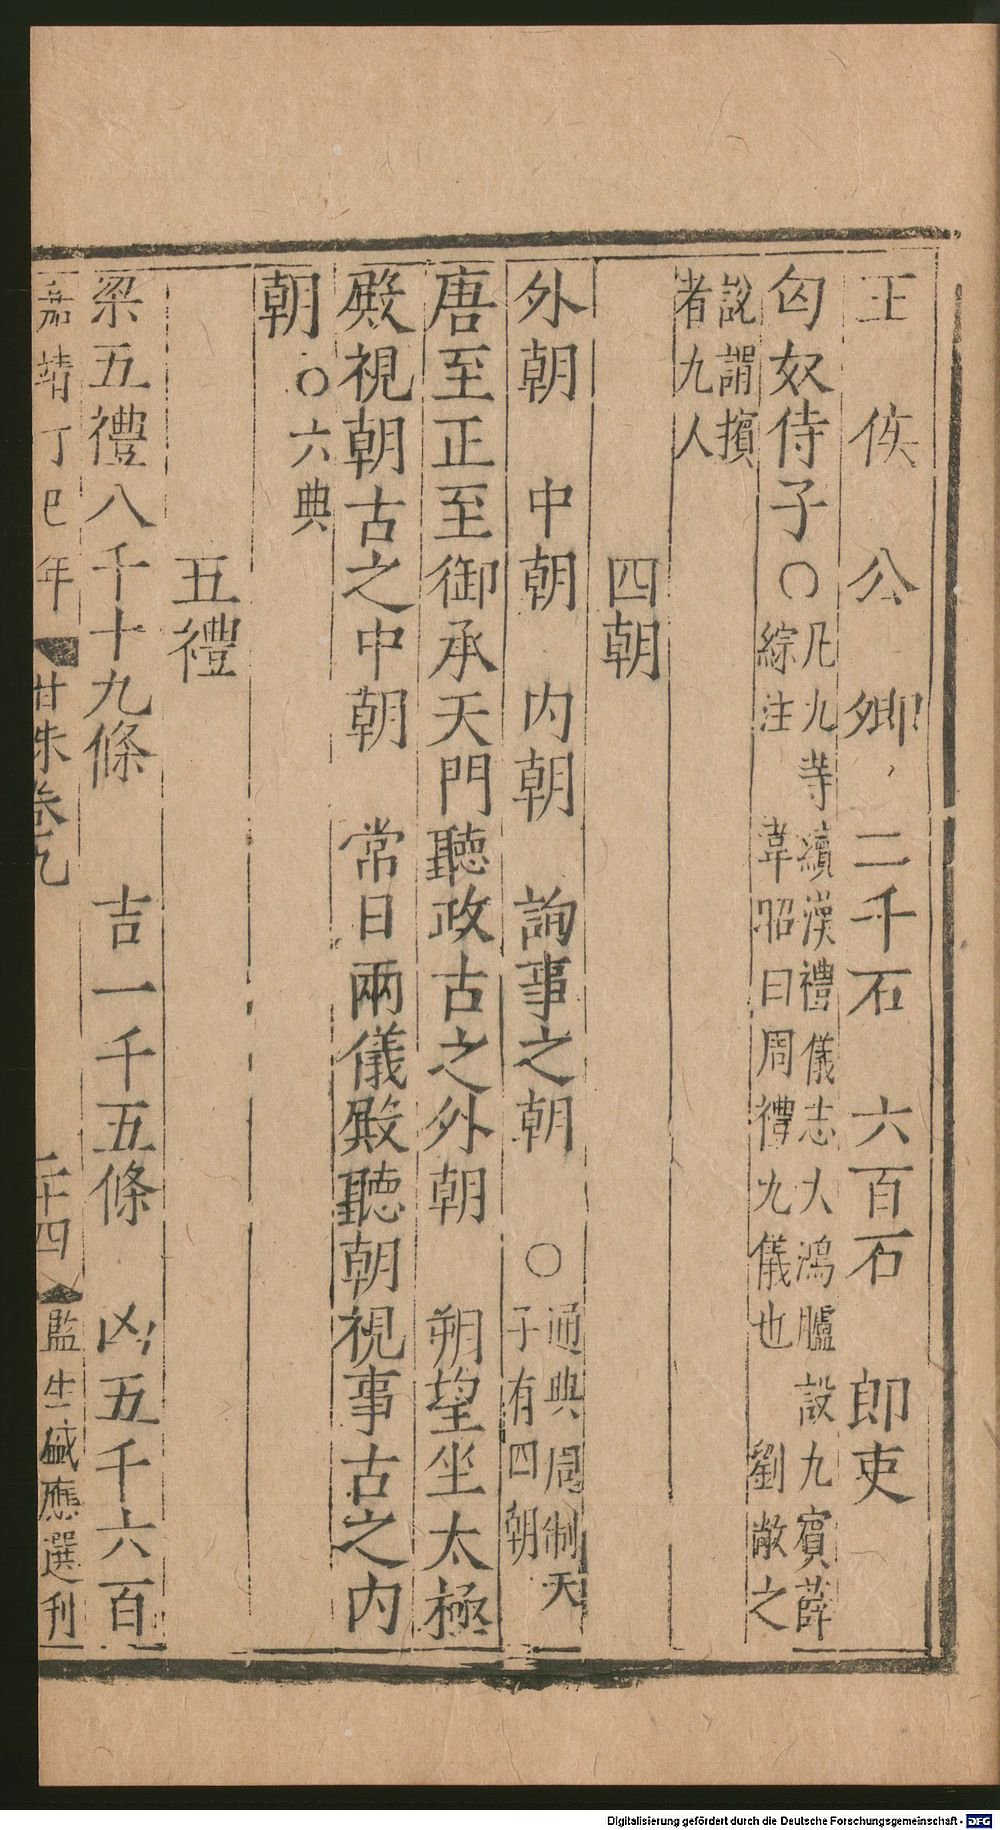 王 侯 公 卿 二千石 六百石 郎吏
匈奴侍子○凡九寺續漢禮儀志大鴻臚設九賓薛
綜注 韋昭曰周禮九儀也 劉敞之
說謂擯
者九人
四朝
外朝 中朝 内朝 詢事之朝 ○通典周制天
子有四朝
唐至正至御承天門聽政古之外朝 朔望坐太極
殿視朝古之中朝 常日兩儀殿聽朝視事古之内
朝○六典
五禮
梁五禮八千十九條 吉一千五條 凶五千六百
嘉靖丁巳年 甘珠卷九 二十四 監生 應選刊
Digitalisierung gefördert durch die Deutsche Forschungsgemeinschaft - DFG